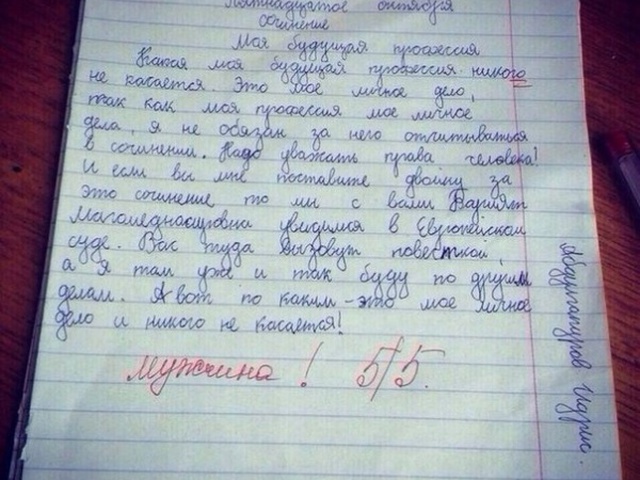 Пятнадцатое октября
Сочинение
Моя будущая профессия
Какая моя будущая профессия никого
не касается. Это мое личное дело,
так как моя профессия мое личное
дела, я не обязан за него отчитываться
в сочинении. Надо уважать права человека!
И если вы мне поставите двойку за
это сочинение то мы с вами Варият
Магомеднасировна увидимся в Европейском
суде. Вас туда вызовут повесткой,
а я там уже и так буду по другим
делам. А вот по каким - это мое личное
дело и никого не касается!
мужчина! 5/5.
Абдулгапуров Идрис.